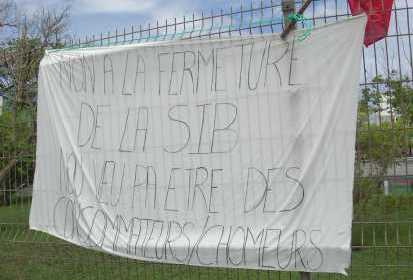 NON A LA FERMETURE
DE LA SIB
VEU PA ETRE DES
CONSOMMATEURS/CHOMEURS